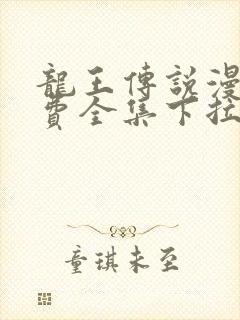 龍王傳說漫
費全集下拉
童琪未至